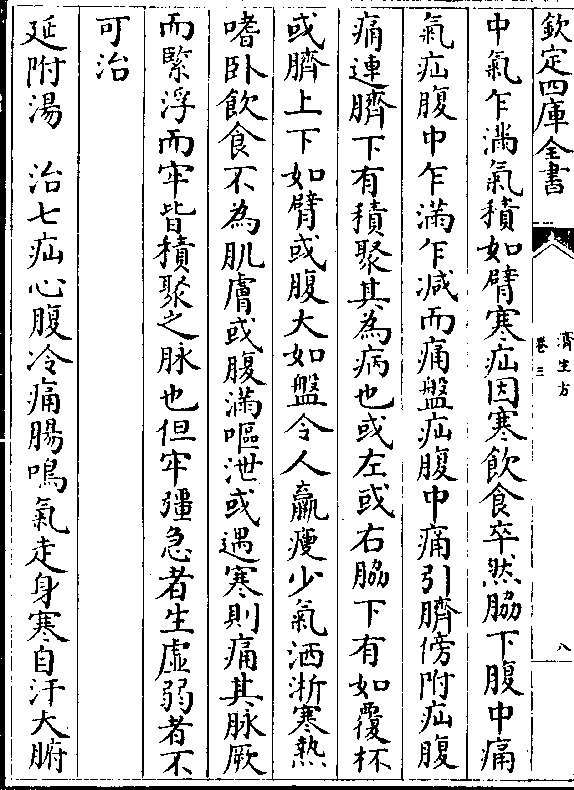 欽定四庫全書
濟生方
卷三
八
中氣乍滿氣積如臂寒疝因寒飲食卒然脇下腹中痛
氣疝腹中乍滿乍減而痛盤疝腹中痛引臍傍附疝腹
痛連臍下有積聚其為病也或左或右脇下有如覆杯
或臍上下如臂或腹大如盤令人羸瘦少氣洒淅寒熱
嗜卧飲食不為肌膚或腹滿嘔泄或遇寒則痛其脉厥
而緊浮而牢皆積聚之脉也但牢彊急者生虛弱者不
可治
延附湯　治七疝心腹冷痛腸鳴氣走身寒自汗大腑